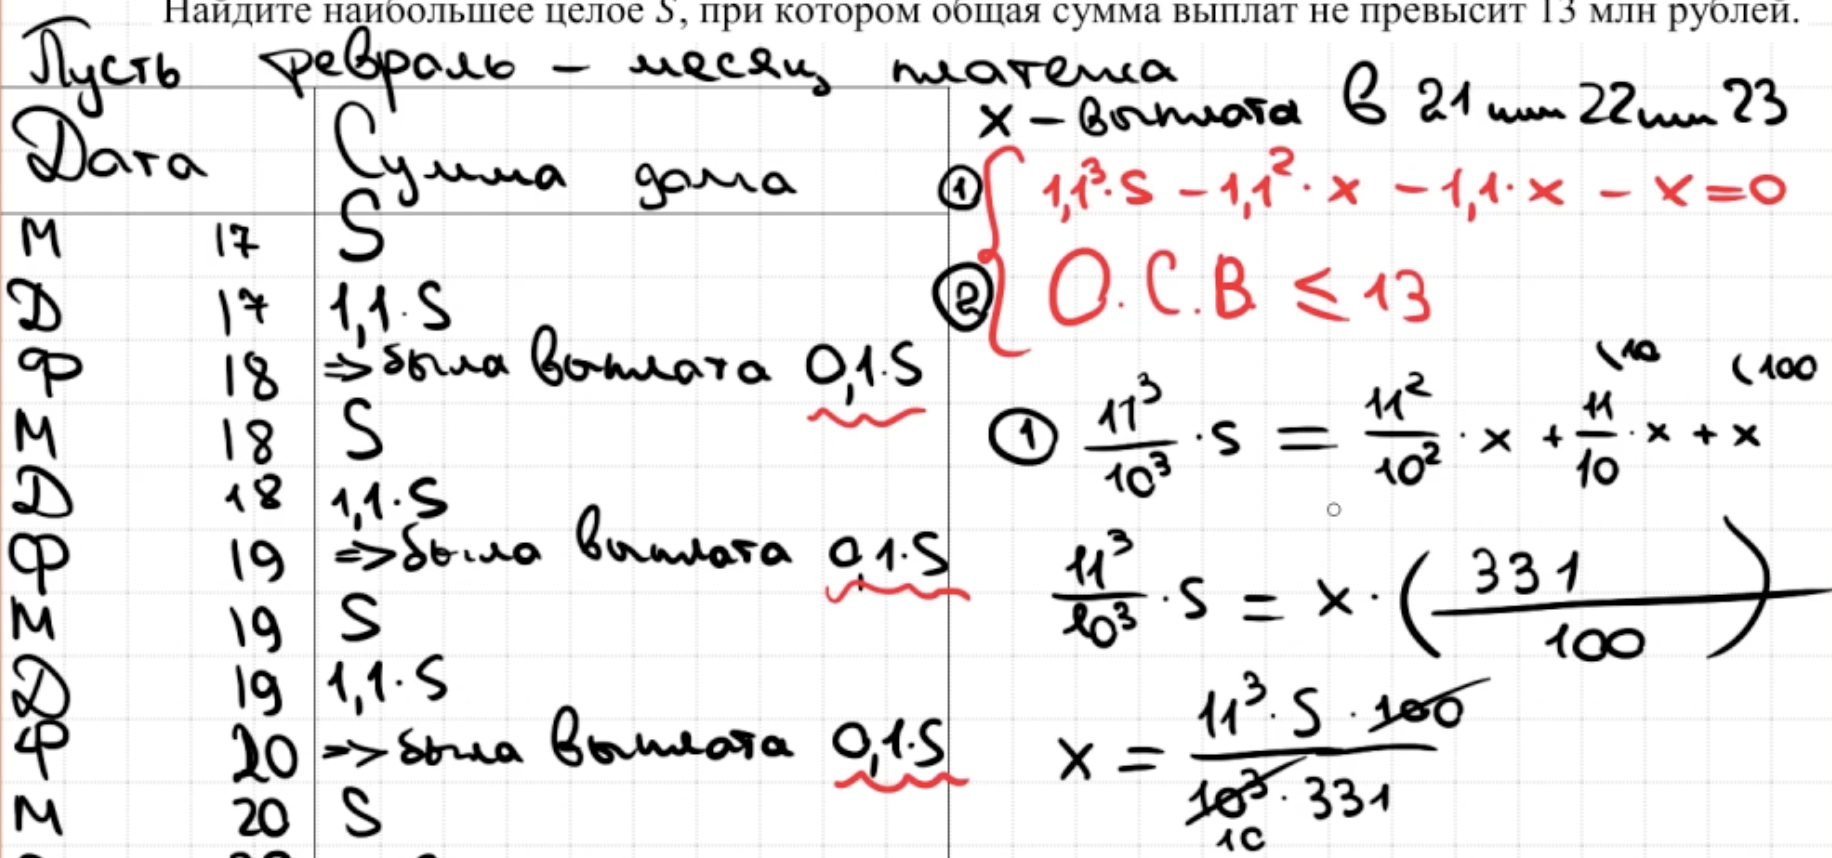 Найдите наибольшее целое S, при котором общая сумма выплат не превысит 13 млн рублей.
Пусть февраль – месяц платежа
Дата Сумма долга
М 17 S
Д 17 1,1·S
Ф 18 => была выплата 0,1·S
М 18 S
Д 18 1,1·S
Ф 19 => была выплата 0,1·S
М 19 S
Д 19 1,1·S
Ф 20 => была выплата 0,1·S
М 20 S
x – выплата в 21 или 22 или 23
① 1,1³·S – 1,1²·x – 1,1·x – x = 0
② О.С.В ≤ 13
(10 (100
① 11³/10³ · S = 11²/10² · x + 11/10 · x + x
11³/10³ · S = x · (331/100)
x = 11³·S·100/10³·331
10